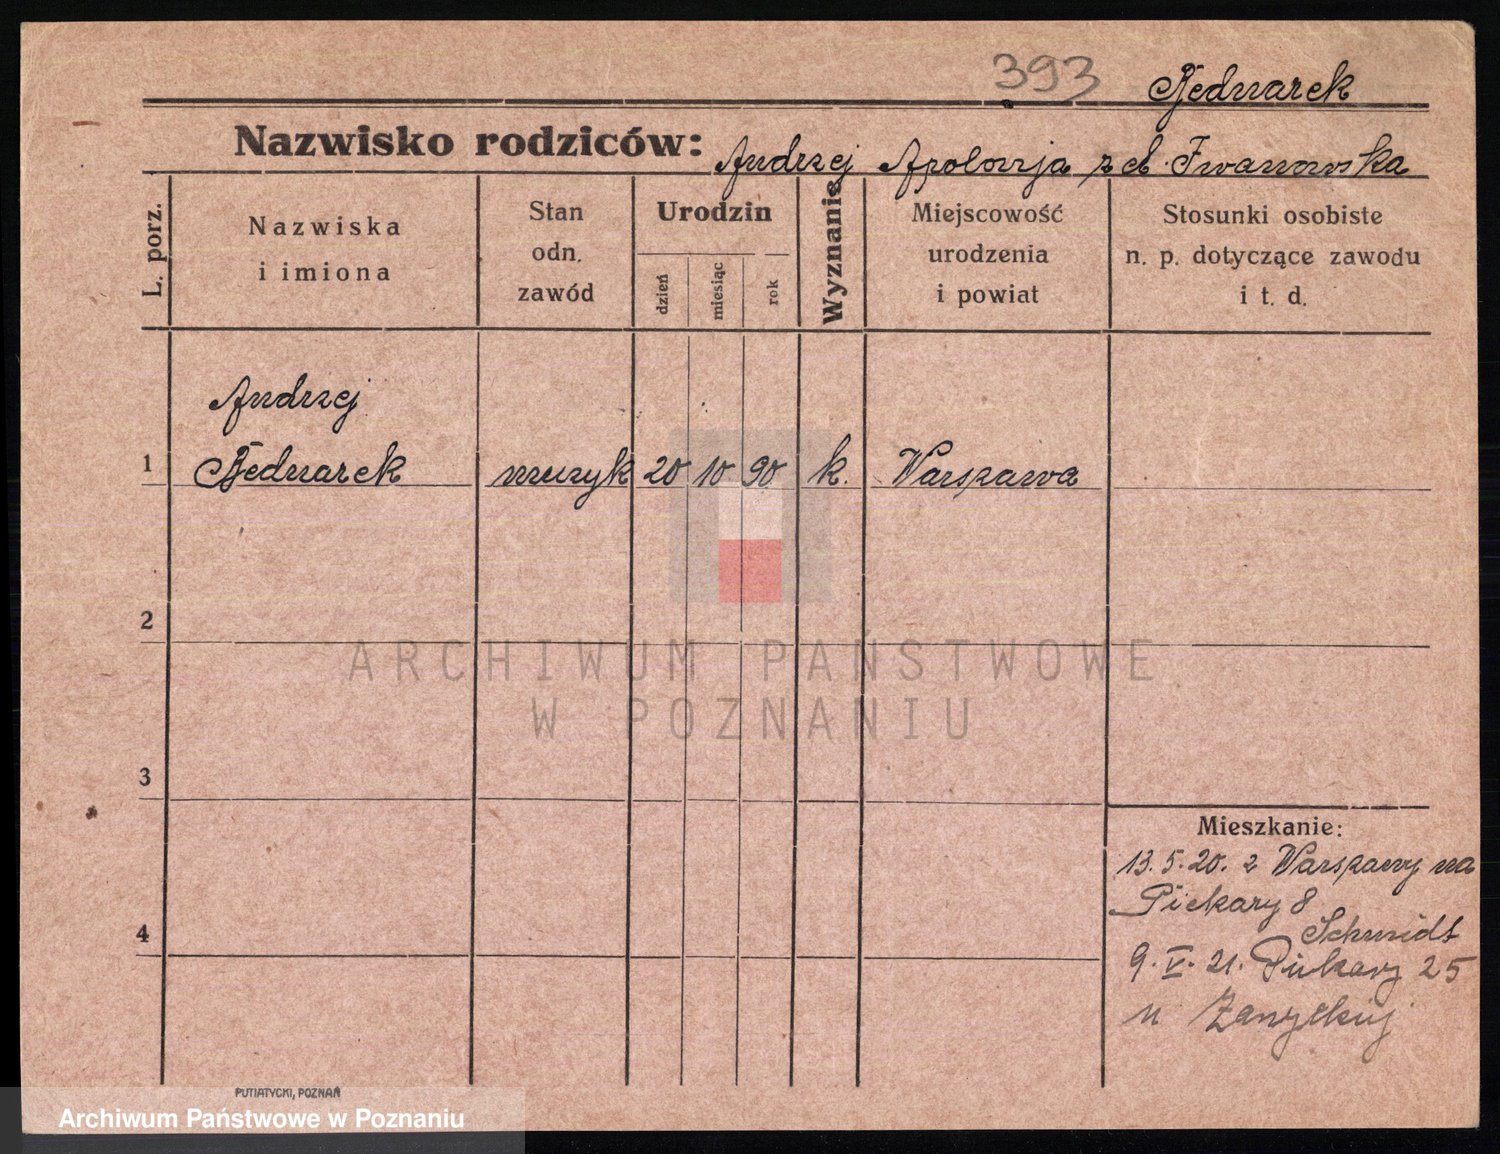 393 Bednarek
Nazwisko rodziców: Andrzej Apolonja z d. Iwanowska
L. porz.
Nazwiska
i imiona
Stan
odn.
zawód
Urodzin
dzień
miesiąc
rok
Wyznanie
Miejscowość
urodzenia
i powiat
Stosunki osobiste
n. p. dotyczące zawodu
i t. d.
Andrzej
1 Bednarek muzyk 20 10 90 k. Warszawa
2
3
4
Mieszkanie:
13.5.20. z Warszawy na
Piekary 8
Schmidt
9.V.21. Piekary 25
u
ARCHIWUM PAŃSTWOWE
W POZNANIU
PUTIATYCKI, POZNAŃ
Archiwum Państwowe w Poznaniu